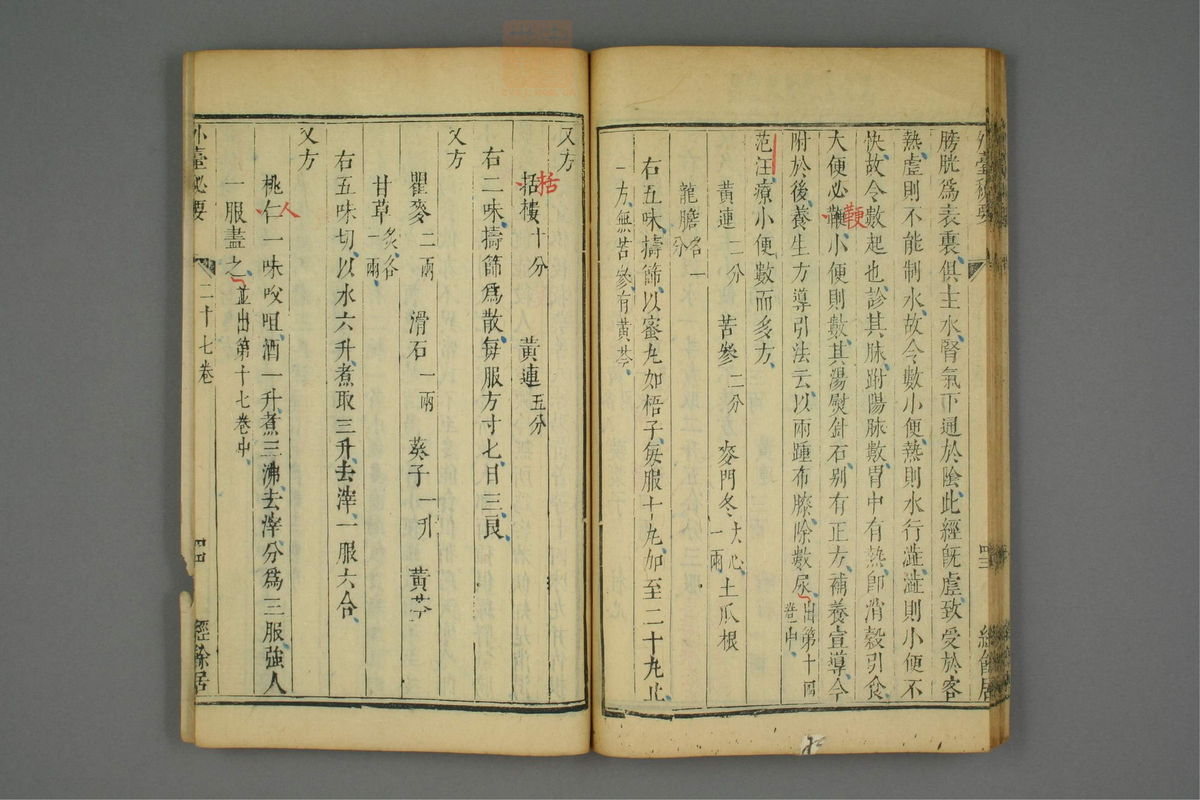 膀胱爲表裏俱主水腎氣下通於陰此經旣虛致受於客
熱虛則不能制水故令數小便熱則水行澁澁則小便不
快故令數起也診其脉跗陽脉數胃中有熱卽消穀引食
大便必鞕小便則數其湯熨針石别有正方補養宣導今
鞕
附於後養生方導引法云以兩踵布膝除數尿出第十四卷中
范汪療小便數而多方
黃連二分 苦參二分 麥門冬一兩去心 土瓜根
龍膽各一分
右五味擣篩以蜜丸如梧子每服十丸加至二十丸止
一方無苦參有黃芩
外臺秘要
四三
經餘居
又方
栝樓十分 黃連五分
栝
右二味擣篩爲散每服方寸匕日三良
又方
瞿麥二兩 滑石一兩 葵子一升 黃芩
甘草炙各一兩
右五味切以水六升煮取三升去滓一服六合
又方
桃仁一味㕮咀酒一升煮三沸去滓分爲三服强人
人
一服盡之並出第十七卷中
外臺秘要
二十七卷
四四
經餘居